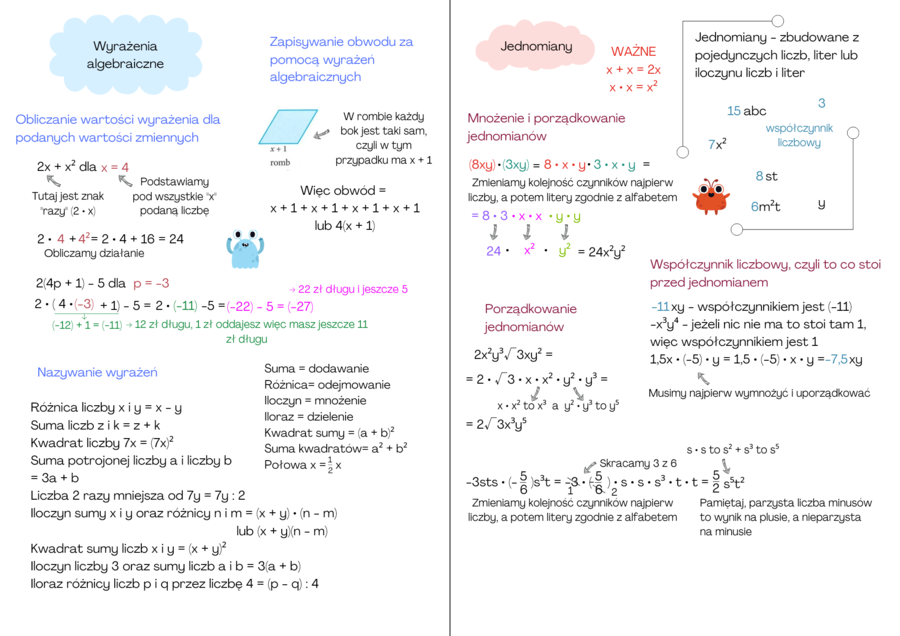 Wyrażenia
algebraiczne
Zapisywanie obwodu za
pomocą wyrażeń
algebraicznych
Obliczanie wartości wyrażenia dla
podanych wartości zmiennych
2x + x² dla x = 4
Tutaj jest znak
"razy" (2 • x)
Podstawiamy
pod wszystkie "x"
podaną liczbę
2 • 4 + 4² = 2 • 4 + 16 = 24
Obliczamy działanie
x + 1
romb
W rombie każdy
bok jest taki sam,
czyli w tym
przypadku ma x + 1
Więc obwód =
x + 1 + x + 1 + x + 1 + x + 1
lub 4(x + 1)
2(4p + 1) – 5 dla p = –3
→ 22 zł długu i jeszcze 5
2 • ( 4 •(–3) + 1) – 5 = 2 • (–11) –5 =(–22) – 5 = (–27)
(–12) + 1 = (–11) → 12 zł długu, 1 zł oddajesz więc masz jeszcze 11
zł długu
Nazywanie wyrażeń
Suma = dodawanie
Różnica= odejmowanie
Iloczyn = mnożenie
Iloraz = dzielenie
Kwadrat sumy = (a + b)²
Suma kwadratów= a² + b²
Połowa x = ½ x
Różnica liczby x i y = x – y
Suma liczb z i k = z + k
Kwadrat liczby 7x = (7x)²
Suma potrojonej liczby a i liczby b
= 3a + b
Liczba 2 razy mniejsza od 7y = 7y : 2
Iloczyn sumy x i y oraz różnicy n i m = (x + y) • (n – m)
lub (x + y)(n – m)
Kwadrat sumy liczb x i y = (x + y)²
Iloczyn liczby 3 oraz sumy liczb a i b = 3(a + b)
Iloraz różnicy liczb p i q przez liczbę 4 = (p – q) : 4
Jednomiany
WAŻNE
x + x = 2x
x • x = x²
Jednomiany – zbudowane z
pojedynczych liczb, liter lub
iloczynu liczb i liter
15 abc
3
współczynnik
liczbowy
7x²
8 st
6m²t
y
Mnożenie i porządkowanie
jednomianów
(8xy) • (3xy) = 8 • x • y • 3 • x • y =
Zmieniamy kolejność czynników najpierw
liczby, a potem litery zgodnie z alfabetem
= 8 • 3 • x • x • y • y
24 • x² • y² = 24x²y²
Współczynnik liczbowy, czyli to co stoi
przed jednomianem
–11xy – współczynnikiem jest (–11)
–x³y⁴ – jeżeli nic nie ma to stoi tam 1,
więc współczynnikiem jest 1
1,5x • (–5) • y = 1,5 • (–5) • x • y =–7,5xy
Musimy najpierw wymnożyć i uporządkować
Porządkowanie
jednomianów
2x²y³√3xy² =
= 2 • √3 • x • x² • y² • y³ =
x • x² to x³ a y² • y³ to y⁵
= 2√3x³y⁵
s • s to s² + s³ to s⁵
Skracamy 3 z 6
–3sts • (–5/6)s³t = –3 1 • (–5/6) 2 • s • s • s³ • t • t = 5/2 s⁵t²
Zmieniamy kolejność czynników najpierw
liczby, a potem litery zgodnie z alfabetem
Pamiętaj, parzysta liczba minusów
to wynik na plusie, a nieparzysta
na minusie